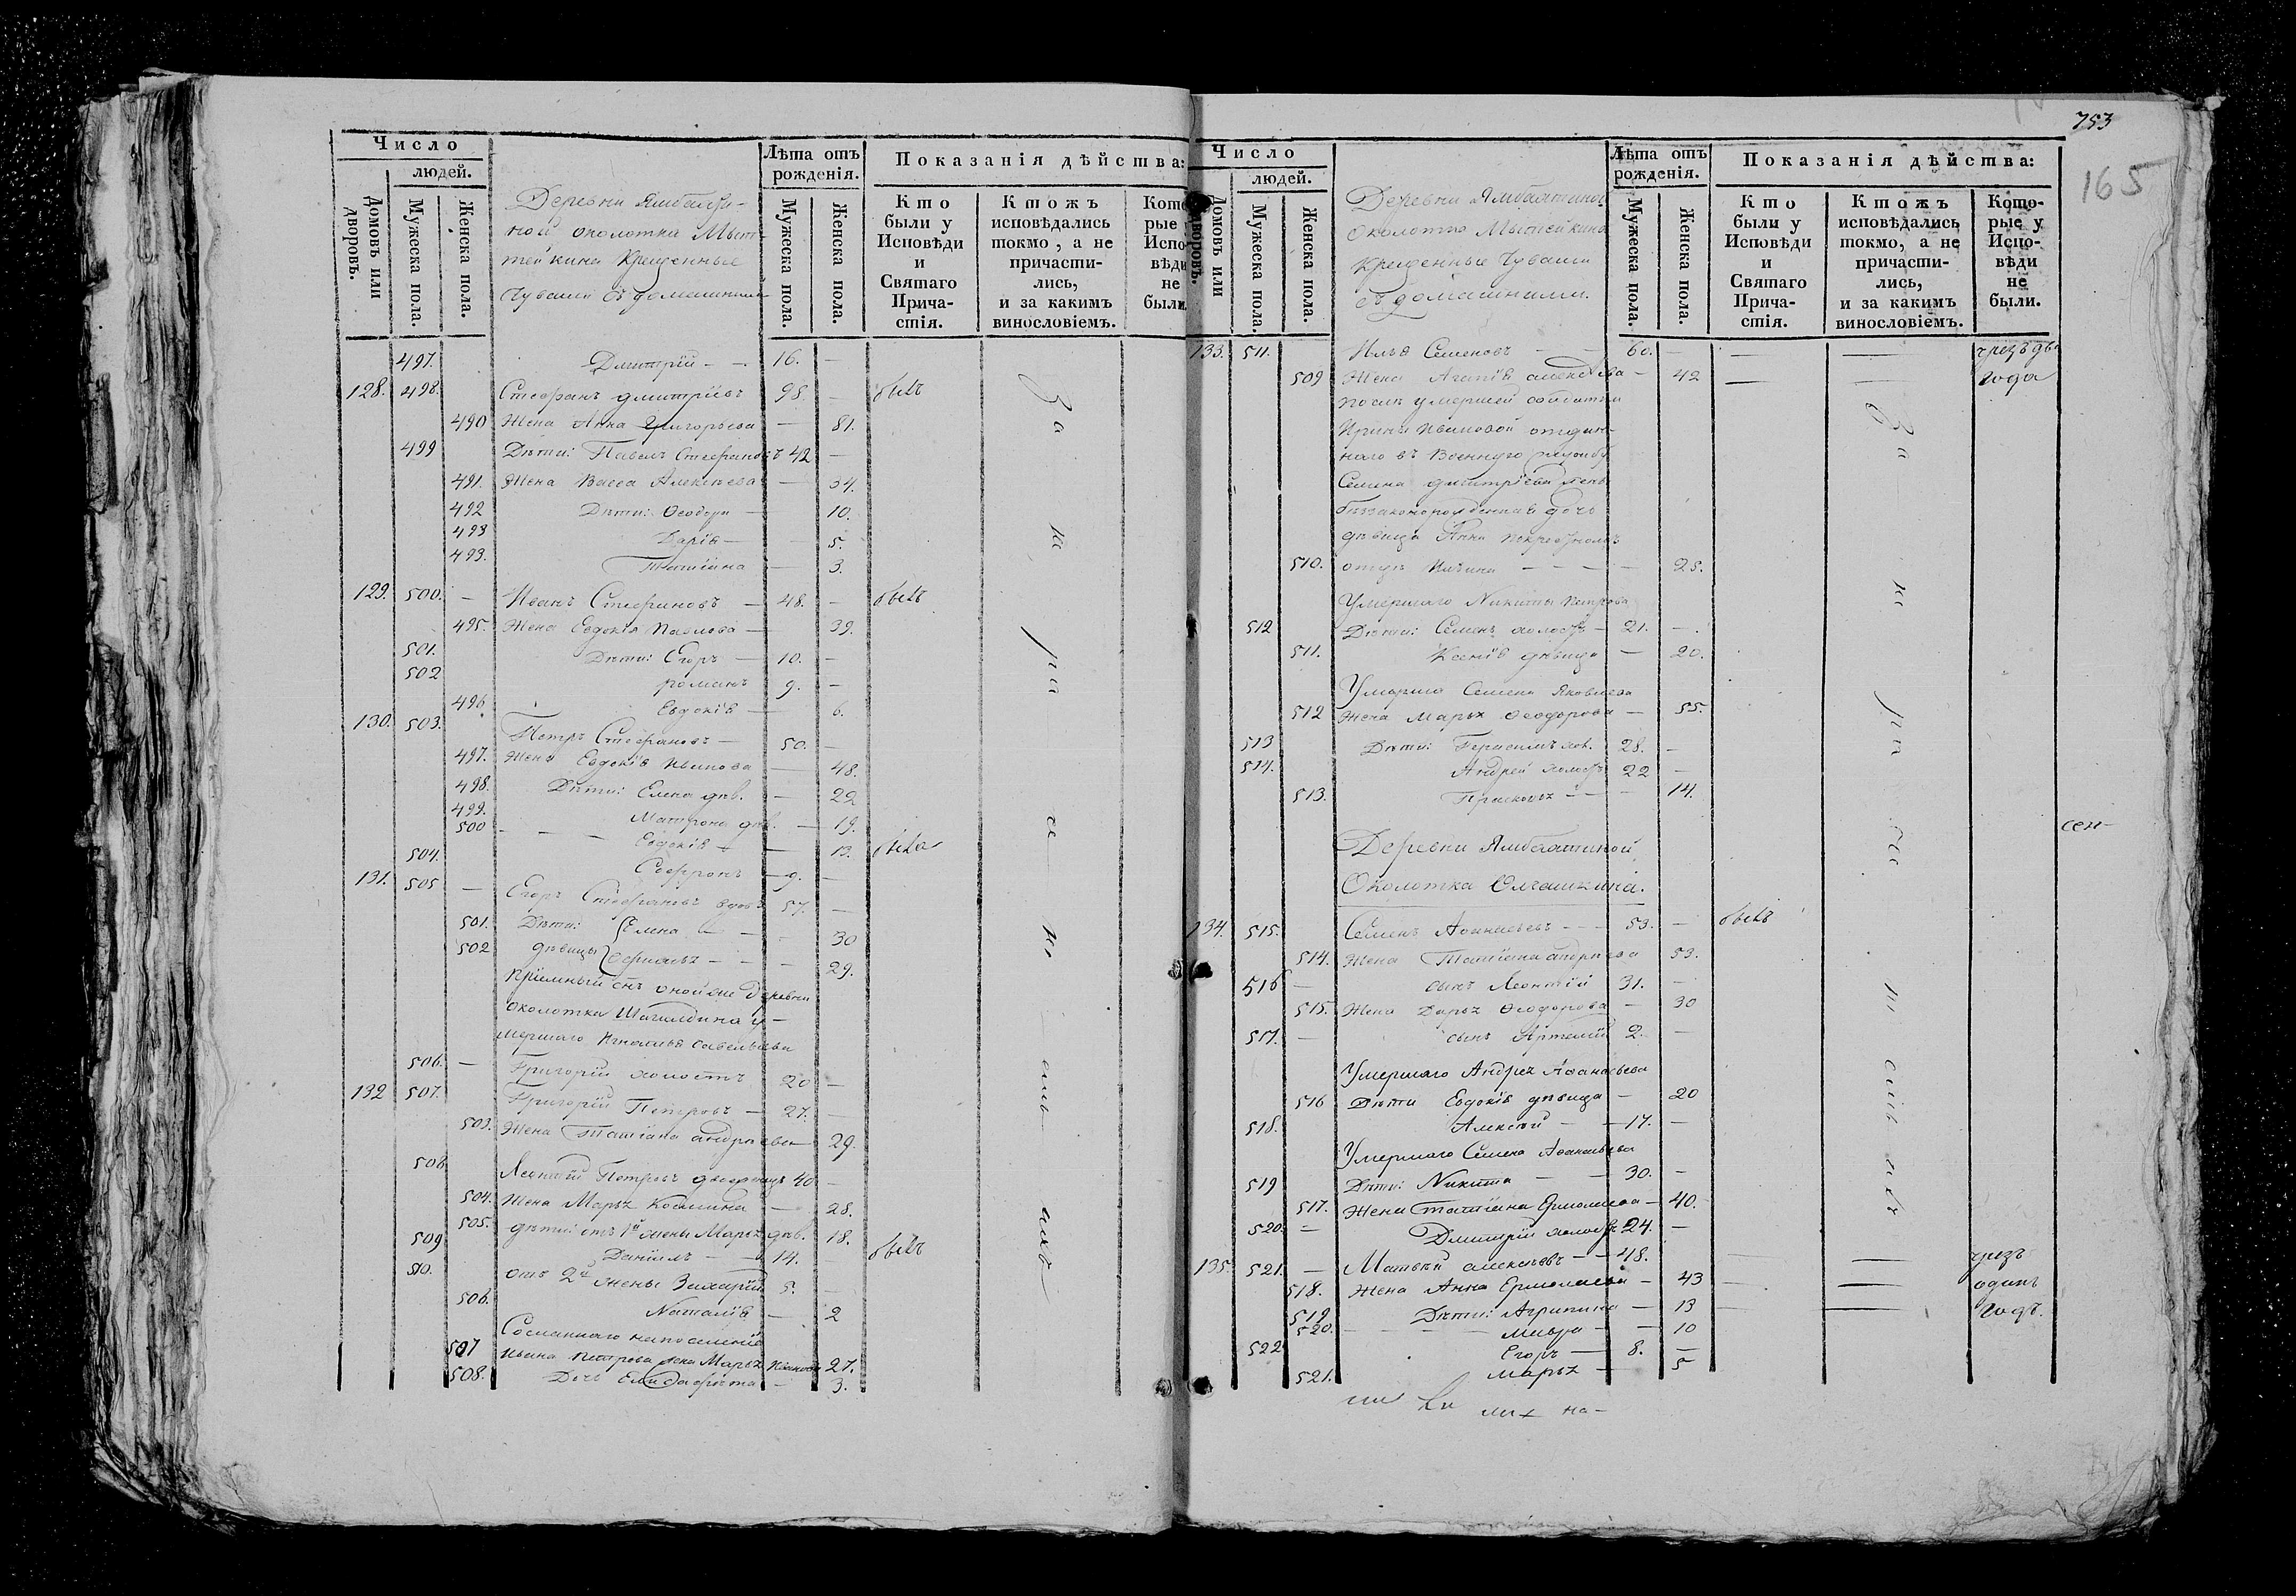 Число
людей.
Домовъ или дворовъ.
Мужеска пола.
Женска пола.
Деревни
ной околотка Мыт-
тейкина Крещенные
Чуваши съ домашними
Лѣта отъ рожденія.
Мужеска пола.
Женска пола.
Показанія дѣйства:
Кто были у Исповѣди и Святаго Прича-стія.
Ктожъ исповѣдались токмо, а не причасти-лись, и за какимъ винословіемъ.
Кото рые Испо вѣди не были.
497. Дмитрій — — 16. —
128. 498. Стефанъ Дмитріевъ 98 — былъ
490 Жена Анна Григорьева — 81.
499 Дѣти: Павелъ Стефановъ 42 —
491. Жена Васса Алексѣева — 34.
492 Дѣти: Ѳеодора — 10.
493 Дарія — 5.
493. Татіана — 3.
129. 500. — Иванъ Стефановъ — 48. — былъ
495. Жена Евдокія Павлова — 39.
501. Дѣти: Егоръ — 10. —
502 романъ 9. —
496 Евдокія — 6.
130. 503. Петръ Стефановъ — 50. —
497. Жена Евдокія Иванова — 48.
498. Дѣти: Елена дѣв. — 22
499. Матрона дѣв. — 19.
500 — — — Евдокія — — 13. была
504. Софронъ — 9. —
131. 505 — Егоръ Стефановъ вдовъ 57. —
501. Дѣти: Елена — — — 30
502 дѣвицы — — — 29.
Пріемный снъ оной же Деревни
околотка у-
мершаго Игнатья Савельева
506. — Григорій холостъ 20 —
132 507. Григорій Петровъ — 27. —
503. Жена Татіана Андреева 29.
508 Леонтій Петровъ 40 —
504. Жена Марья Козмина — 28.
505. дѣти: отъ 1й жены Марья дѣв. 18.
509 Даніилъ — — 14. — былъ
510. отъ 2й жены Захарій 5. —
506. Наталія — 2
Сосланнаго на поселеніе
507 Ивана Петрова жена Марья Иванова 27.
508. Дочь Елисавета — 3.
За не ра че ні емъ ихъ
753
165
Число
людей.
Домовъ или дворовъ.
Мужеска пола.
Женска пола.
Деревни Ямбахтиной
Околотка Мыттейкина
Крещенные Чуваши
съ домашними.
Лѣта отъ рожденія.
Мужеска пола.
Женска пола.
Показанія дѣйства:
Кто были у Исповѣди и Святаго Прича-стія.
Ктожъ исповѣдались токмо, а не причасти-лись, и за какимъ винословіемъ.
Кото-рые у Испо-вѣди не были.
133. 511. Илья Семеновъ — — 60. — — — чрезъ два
509 Жена Агапія — 42 — — года
послѣ умершей солдатки
Ирины Ивановой отдан-
наго въ Военную службу
Семена Дмитріева жены
беззаконорожденная дочь
дѣвица Анна
510. отцу Ильина — — — — 25.
Умершаго Никиты Петрова
512 Дѣти: Семенъ холостъ — 21. —.
511. Ксенія дѣвица — 20.
Умершаго Семена Яковлева
512 Жена Марья Ѳеодорова — 55.
513 Дѣти: Герасимъ хол. 28. —
514. Андрей холостъ 22 —
513. Прасковья — — — 14.
Деревни Ямбахтиной
Околотка
134. 515. Семенъ Аѳанасьевъ — — — 53. — былъ
514. Жена Татіана Андреева 53.
516 — сынъ Леонтій 31. —
515. Жена Дарья Ѳеодорова — 30
517. — сынъ Артемій 2. —
Умершаго Андрея Аѳанасьева
516 Дѣти Евдокія дѣвица — 20
518. Алексѣй — — 17. —
Умершаго Семена Аѳанасьева
519 Дѣти: Никита — — 30. —
517. Жена Татіана Ермолаева — 40.
520 — Дмитрій холостъ 24. —
135. 521. — Матвей Алексѣевъ — — 48. — — чрезъ
518. Жена Анна Ермолаева — 43 — — одинъ
519 Дѣти: Агрипина — 13 — — годъ.
520. — — — — — — 10
522 Егоръ — 8. —
521. Марья — 5
За не ра че ні емъ ихъ
сен-